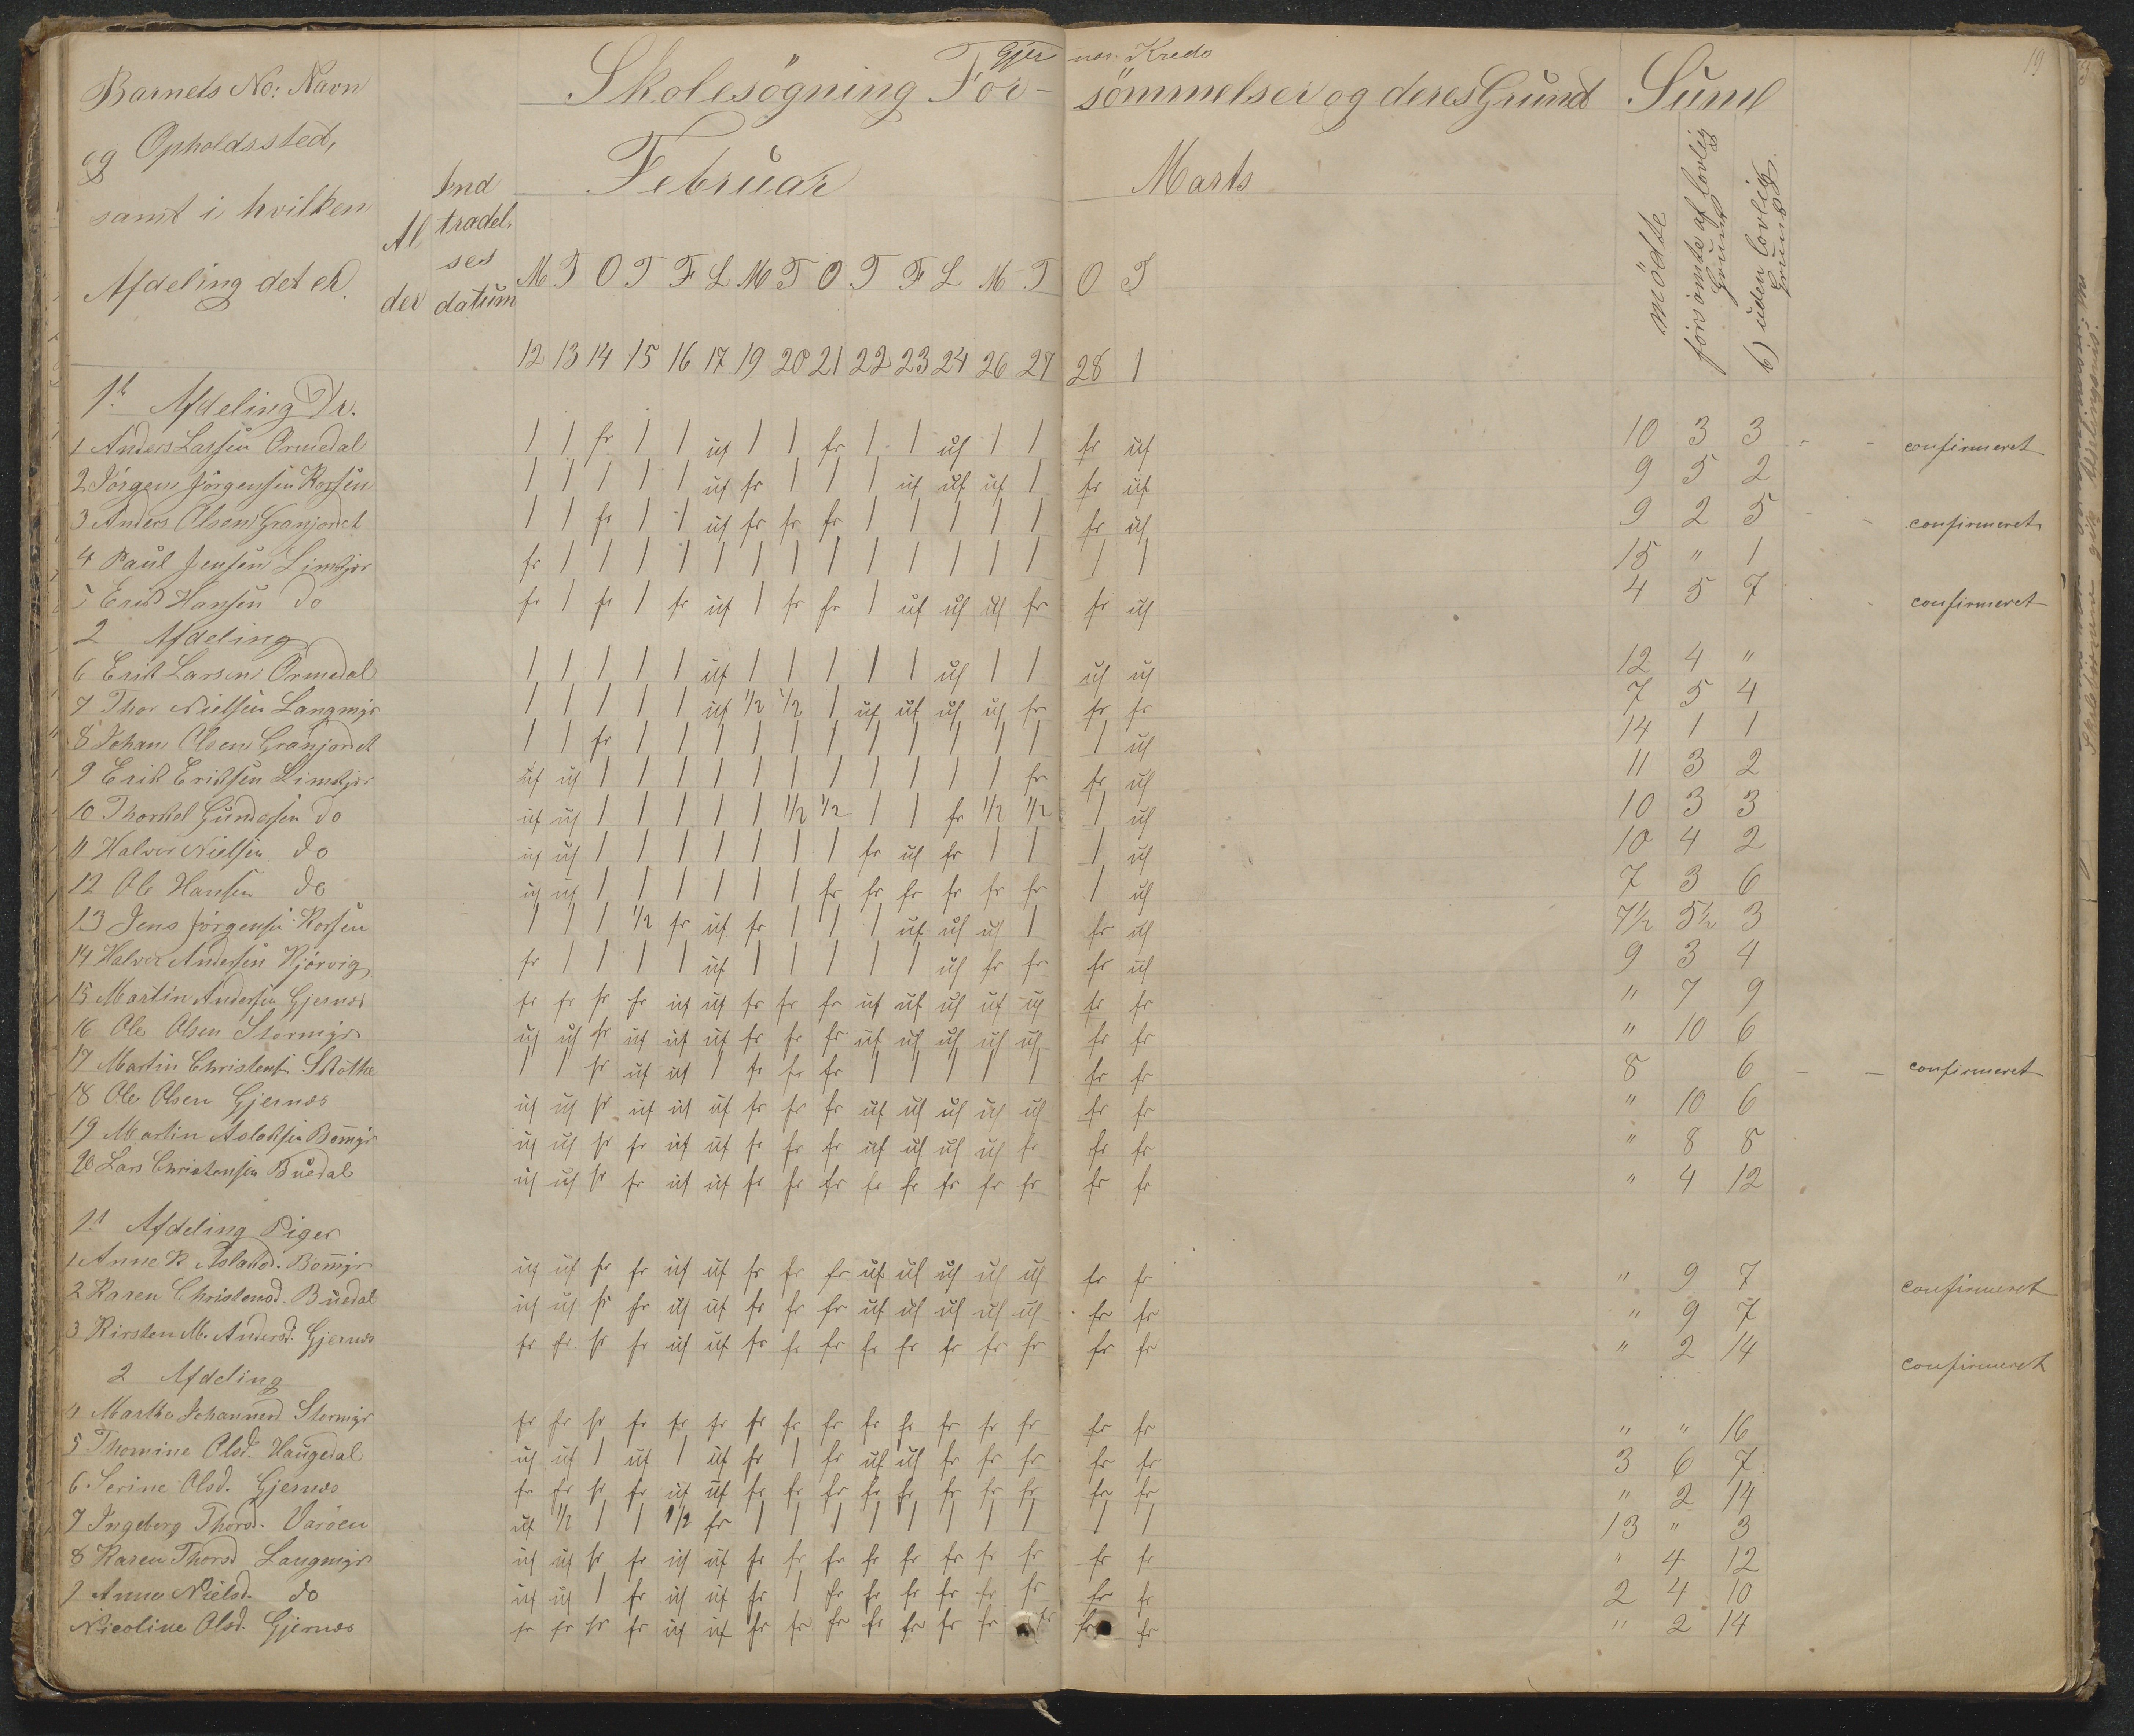 19
Gjer næs Kreds
Barnets No: Navn
og Opholdssted,
samt i hvilken
Afdeling det er.
Al
der
Ind
trædel.
ses
datum
Skolesøgning For- sömmelser og deres Grund Suml
Februar Marts
mödte
försömte af lovlig Grund
b) uden lovlig Grund
M T O T F L M T O T F L M T O T
12 13 14 15 16 17 19 20 21 22 23 24 26 27 28 1
1ste Afdeling Dr.
1 Anders Larsen Ormedal 1 1 fr 1 1 uf 1 1 fr 1 1 uf 1 1 fr uf 10 3 3 - - confirmeret
2 Jörgen Jörgensen Korsen 1 1 1 1 1 uf fr 1 1 1 uf uf uf 1 fr uf 9 5 2
3 Anders Olsen Granjordet 1 1 fr 1 1 uf fr fr fr 1 1 1 1 1 fr uf 9 2 5 - - confirmeret
4 Paul Jensen Limkjær fr 1 1 1 1 1 1 1 1 1 1 1 1 1 1 1 15 " 1
5 Erik Hansen do fr 1 fr 1 fr uf 1 fr fr 1 uf uf uf fr fr uf 4 5 7 confirmeret
2 Afdeling
6 Erik Larsen Ormedal 1 1 1 1 1 uf 1 1 1 1 1 uf 1 1 uf uf 12 4 "
7 Thor Nielsen Langmyr 1 1 1 1 1 uf 1/2 1/2 1 uf uf uf uf fr fr fr 7 5 4
8 Johan Olsen Granjordet 1 1 fr 1 1 1 1 1 1 1 1 1 1 1 1 uf 14 1 1
9 Erik Eriksen Limkjær uf uf 1 1 1 1 1 1 1 1 1 1 1 fr fr uf 11 3 2
10 Thorkel Gundersen do uf uf 1 1 1 1 1 1/2 1/2 1 1 fr 1/2 1/2 1 uf 10 3 3
11 Halvor Nielsen do uf uf 1 1 1 1 1 1 1 fr uf fr 1 1 1 uf 10 4 2
12 Ole Hansen do uf uf 1 1 1 1 1 1 fr fr fr fr fr fr 1 uf 7 3 6
13 Jens Jörgensen Korsen 1 1 1 1/2 fr uf fr 1 1 1 uf uf uf 1 fr uf 7 1/2 5 1/2 3
14 Halvor Andersen Kjörvig fr 1 1 1 1 uf 1 1 1 1 1 uf fr fr fr uf 9 3 4
15 Martin Andersen Gjernæs fr fr fr fr uf uf fr fr fr uf uf uf uf uf fr fr " 7 9
16 Ole Olsen Stormyr uf uf fr uf uf uf fr fr fr uf uf uf uf uf fr fr " 10 6
17 Martin Christens. Stötta 1 1 fr uf uf 1 fr fr fr 1 1 1 1 1 fr fr 8 6 - - confirmeret
18 Ole Olsen Gjernæs uf uf fr uf uf uf fr fr fr uf uf uf uf uf fr fr " 10 6
19 Martin Aslaksen Bommyr uf uf fr fr uf uf fr fr fr uf uf uf uf fr fr fr " 8 8
20 Lars Christensen Buedal uf uf fr fr uf uf fr fr fr fr fr fr fr fr fr fr " 4 12
1st Afdeling Piger
1 Anne K. Aslaksd. Bommyr uf uf fr fr uf uf fr fr fr uf uf uf uf uf fr fr " 9 7 confirmeret
2 Karen Christensd. Buedal uf uf fr fr uf uf fr fr fr uf uf uf uf uf fr fr " 9 7
3 Kirsten M. Andersd. Gjernæs fr fr fr fr uf uf fr fr fr fr fr fr fr fr fr fr " 2 14 confirmeret
2 Afdeling
4 Martha Johannesd. Stormyr fr fr fr fr fr fr fr fr fr fr fr fr fr fr fr fr " " 16
5 Thomine Olsd. Haugedal uf uf 1 uf 1 uf fr 1 fr uf uf fr fr fr fr fr 3 6 7
6 Serine Olsd. Gjernæs fr fr fr fr uf uf fr fr fr fr fr fr fr fr fr fr " 2 14
7 Ingeborg Thorsd. Varöen uf 1/2 1 1 1/2 fr 1 1 1 1 1 1 1 1 1 1 13 " 3
8 Karen Thorsd Langmyr uf uf fr fr uf uf fr fr fr fr fr fr fr fr fr fr " 4 12
9 Anne Nielsd. do uf uf 1 fr uf uf fr 1 fr fr fr fr fr fr fr fr 2 4 10
Nicoline Olsd. Gjernæs fr fr fr fr uf uf fr fr fr fr fr fr fr fr fr fr " 2 14